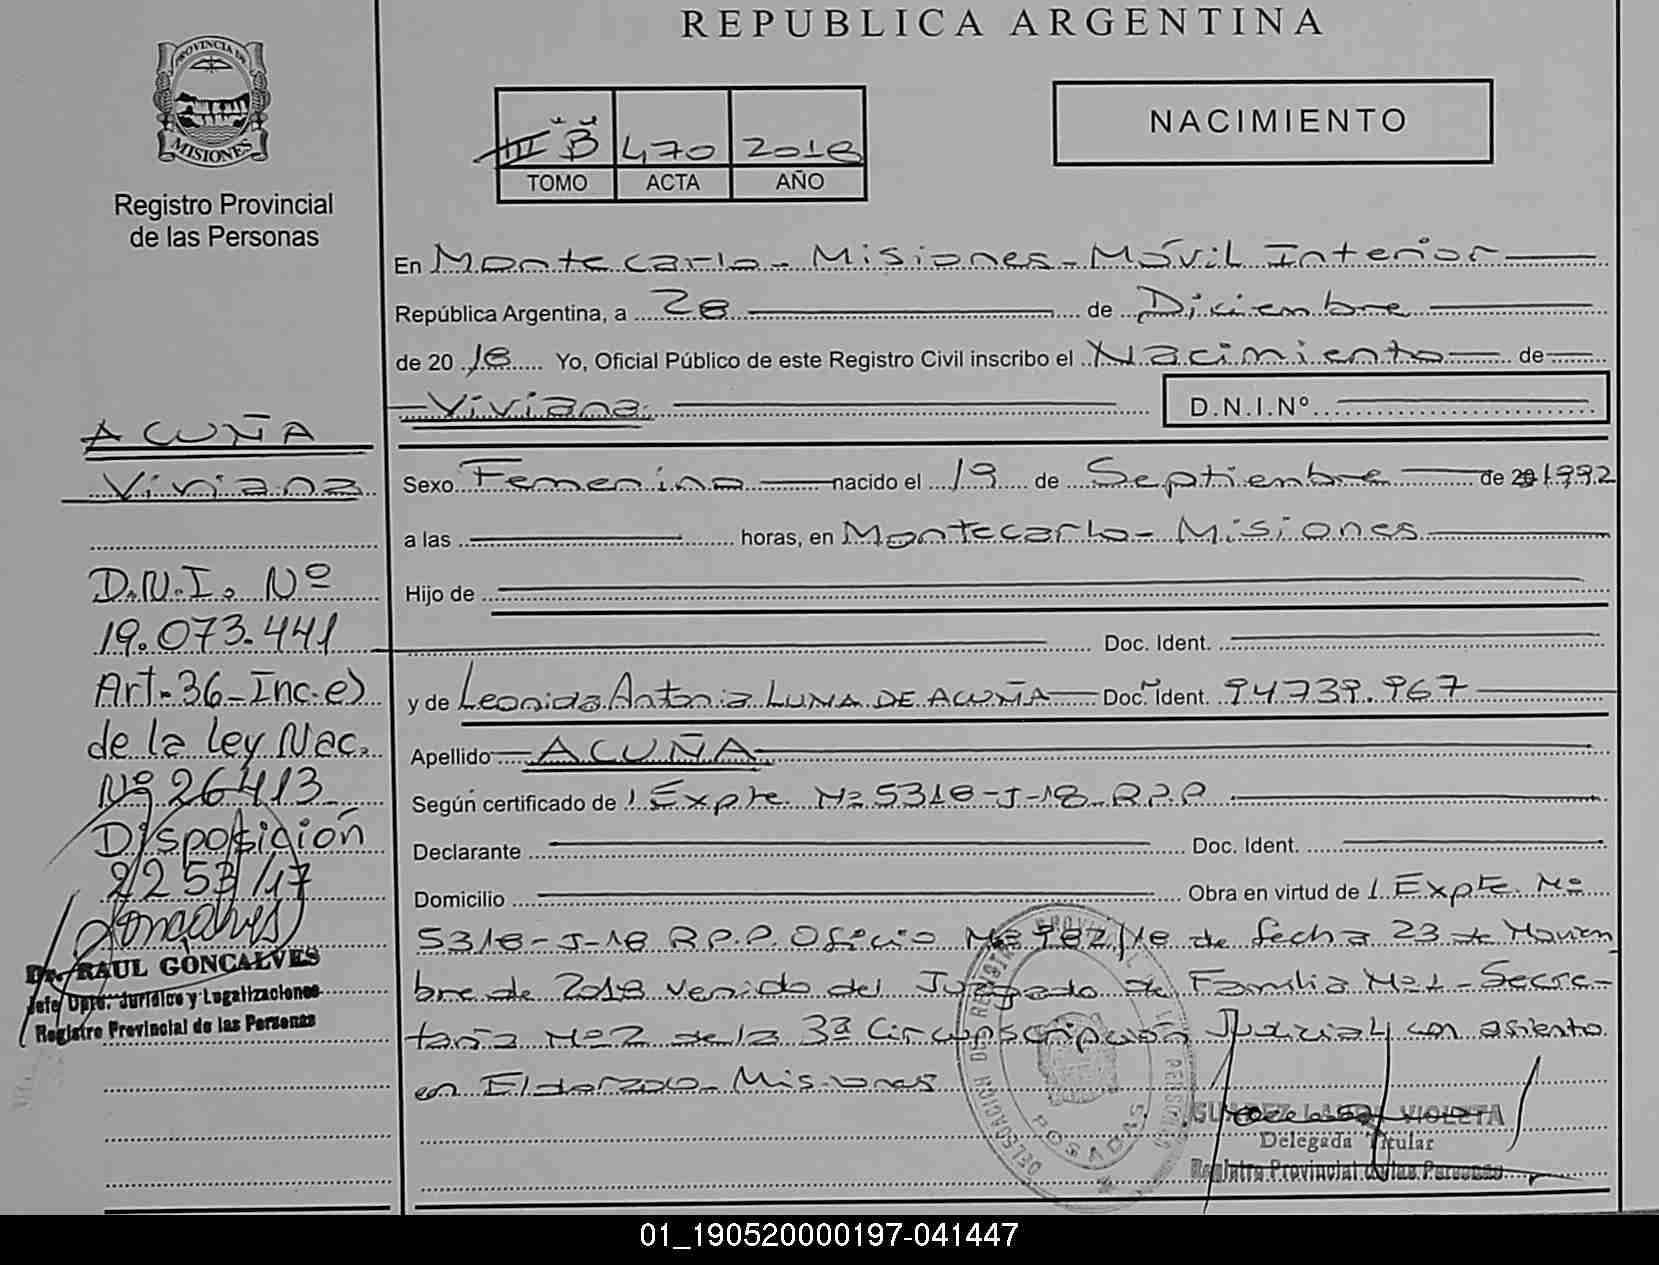 REPUBLICA ARGENTINA
PROVINCIA DE
MISIONES
Registro Provincial
de las Personas
III B 470 2018
TOMO ACTA AÑO
NACIMIENTO
En Montecarlo - Misiones - Móvil Interior
República Argentina, a 28 de Diciembre
de 20 18 Yo, Oficial Público de este Registro Civil inscribo el Nacimiento de
Viviana D.N.I.Nº
Sexo Femenino nacido el 19 de Septiembre de 1992
a las horas, en Montecarlo - Misiones
Hijo de
Doc. Ident.
y de Leonida Antonia LUNA DE ACUÑA Doc. Ident. 94739.967
Apellido ACUÑA
Según certificado de Expte. Nº 5318-J-18 R.P.P
Declarante Doc. Ident.
Domicilio Obra en virtud de Expte. Nº
5318-J-18 R.P.P. Oficio Nº 982/18 de fecha 23 de Noviem
bre de 2018 venido del Juzgado de Familia Nº 1 - Secre-
taría Nº 2 de la 3ª Circunscripción Judicial con asiento
en Eldorado - Misiones
ACUÑA
Viviana
D.N.I. Nº
19.073.441
Art. 36 - Inc. e)
de la Ley Nac.
Nº 26413
Disposición
2253/17
Goncalves
Dr. RAUL GONCALVES
Jefe Dpto. Jurídico y Legalizaciones
Registro Provincial de las Personas
DELEGACION DEL REGISTRO PROVINCIAL
POSADAS
VIOLETA
Delegada Titular
Registro Provincial de las Personas
01_190520000197-041447